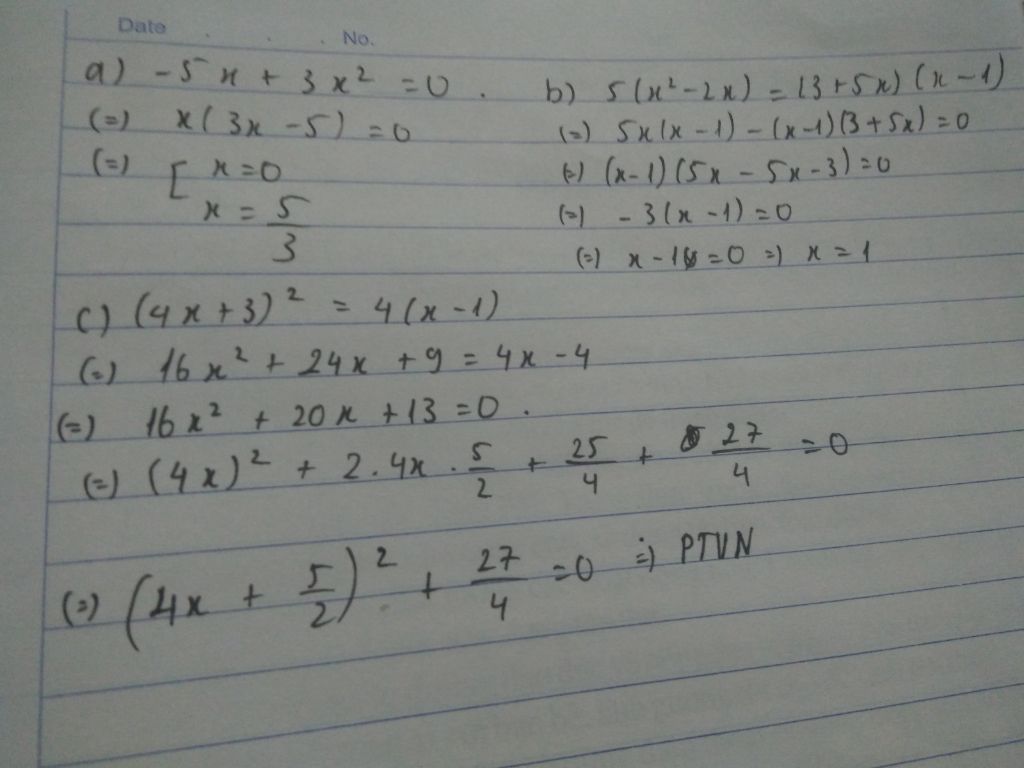 Date . . . No.
a) -5x + 3x² = 0 .
(=) x(3x - 5) = 0
(=) [ x = 0
x = 5/3
b) 5(x² - 2x) = (3 + 5x)(x - 1)
(=) 5x(x - 1) - (x - 1)(3 + 5x) = 0
(=) (x - 1)(5x - 5x - 3) = 0
(=) - 3(x - 1) = 0
(=) x - 1 = 0 =) x = 1
c) (4x + 3)² = 4(x - 1)
(=) 16x² + 24x + 9 = 4x - 4
(=) 16x² + 20x + 13 = 0 .
(=) (4x)² + 2.4x . 5/2 + 25/4 + 27/4 = 0
(=) (4x + 5/2)² + 27/4 = 0 =) PTVN